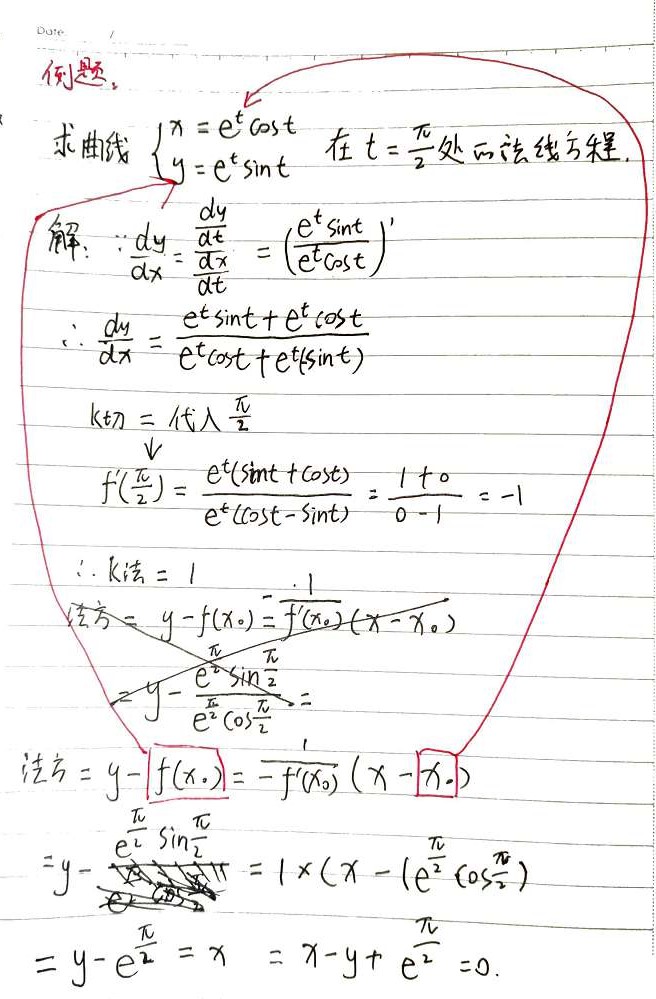 Date /
例题。
求曲线 { x = e^t cost
y = e^t sint 在 t = π/2 处的法线方程.
解: ∵ dy/dx = (dy/dt)/(dx/dt) = (e^t sint / e^t cost)'
∴ dy/dx = (e^t sint + e^t cost)/(e^t cost + e^t(-sint))
k切 = 代入 π/2
↓
f'(π/2) = e^t(sint + cost)/e^t(cost - sint) = (1+0)/(0-1) = -1
∴ k法 = 1
法方 = y - f(x₀) = -1/f'(x₀) (x - x₀)
= y - (e^(π/2) sin π/2)/(e^(π/2) cos π/2) =
法方 = y - f(x₀) = 1/-f'(x₀) (x - x₀)
= y - e^(π/2) sin π/2 = 1×(x - (e^(π/2) cos π/2)
= y - e^(π/2) = x = x - y + e^(π/2) = 0.